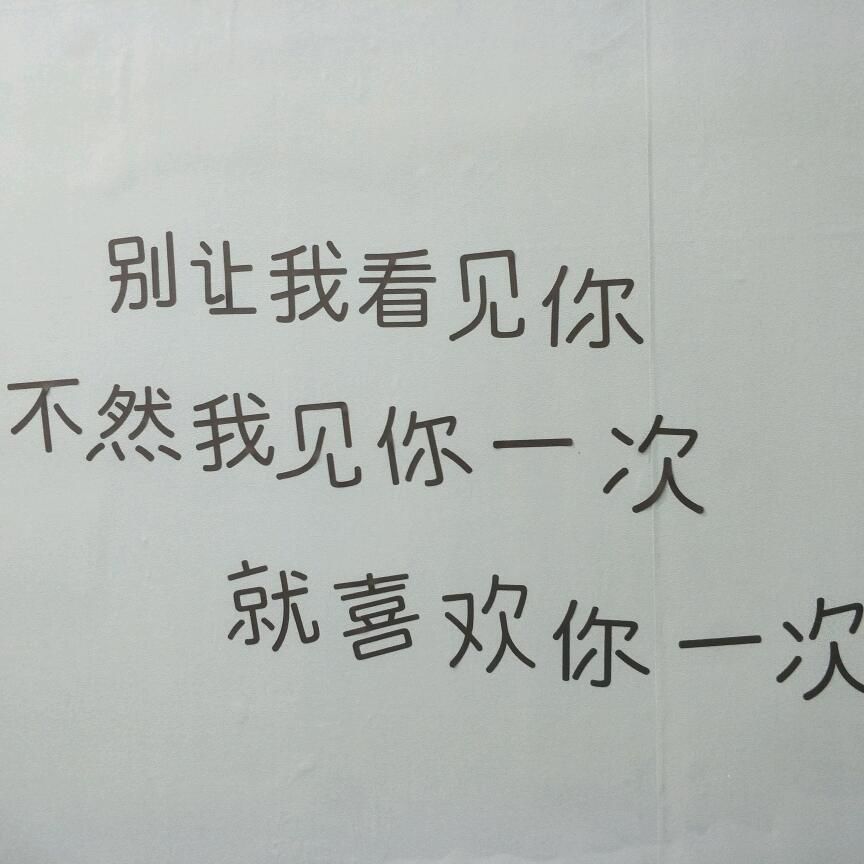 别让我看见你
不然我见你一次
就喜欢你一次